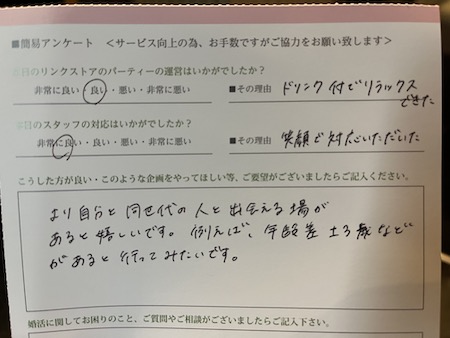 ■簡易アンケート ＜サービス向上の為、お手数ですがご協力をお願い致します＞
日のリンクストアのパーティーの運営はいかがでしたか？
非常に良い・良い・悪い・非常に悪い ■その理由 ドリンク付でリラックス
できた
日のスタッフの対応はいかがでしたか？
非常に良い・良い・悪い・非常に悪い ■その理由 笑顔で対応いただいた
こうした方が良い・このような企画をやってほしい等、ご要望がございましたらご記入ください。
より自分と同世代の人と出会える場が
あると嬉しいです。例えば、年齢差±3歳など
があると行ってみたいです。
婚活に関してお困りのこと、ご質問やご相談がございましたらご記入下さい。